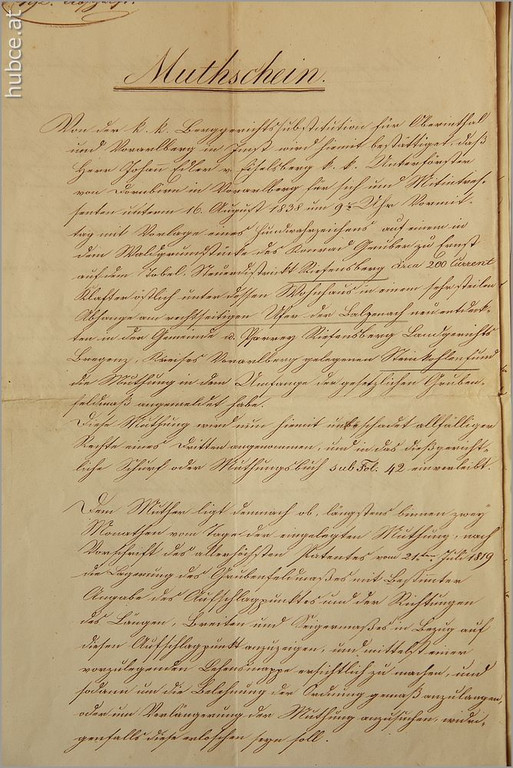 hubce.at
Muthschein.
Von der k. k. Berggerichtssubstitution für Oberinnthal
und Vorarlberg in Imst wird hiemit bestättiget, daß
Herr Johann Edler v. Eiselsberg k. k. Unterförster
von Dornbirn in Vorarlberg für sich und Mitinteres-
senten unterm 16. August 1838 um 9 Uhr Vormit-
tag mit Vorlage eines Fundwahrzeichens auf einem in
dem Waldgrundstücke des Konrad Gruber zu Ernst
aus dem Tabel. Steuerdistrickt Riefensberg circa 200 Current
Klafter östlich unter dessen Wohnhaus in einem sehr steilen
Abhange am rechtseitigen Ufer der Bolgenach neu entdeck-
ten in der Gemeinde u. Pfarrey Riefensberg Landgerichts
Bregenz, Kreises Vorarlberg gelegenen Steinkohlenfund
die Muthung in dem Umfange der gesetzlichen Gruben-
feldmaß angemeldet habe.
Diese Muthung wird nun hiemit unbeschadet allfälliger
Rechte eines Dritten angenommen, und in das dießgericht-
liche Schurf oder Muthungsbuch sub Fol. 42 einverleibt.
Dem Muther ligt demnach ob, längstens binnen zwey
Monathen vom Tage der eingelegten Muthung, nach
Vorschrift des allerhöchsten Patentes vom 21ten July 1819
die Lagerung des Grubenfeldmaßes mit bestimter
Angabe des Aufschlagpunktes und der Richtungen
der Längen, Breiten und Seigermaßes in Bezug auf
diesen Aufschlagpunkt anzuzeigen, und mittelst einer
vorzulegenden Lehensmappe ersichtlich zu machen, und
sodann um die Belehnung der Ordnung gemäß anzulangen
oder um Verlängerung der Muthung anzusuchen, widri-
genfalls diese erloschen seyn soll.